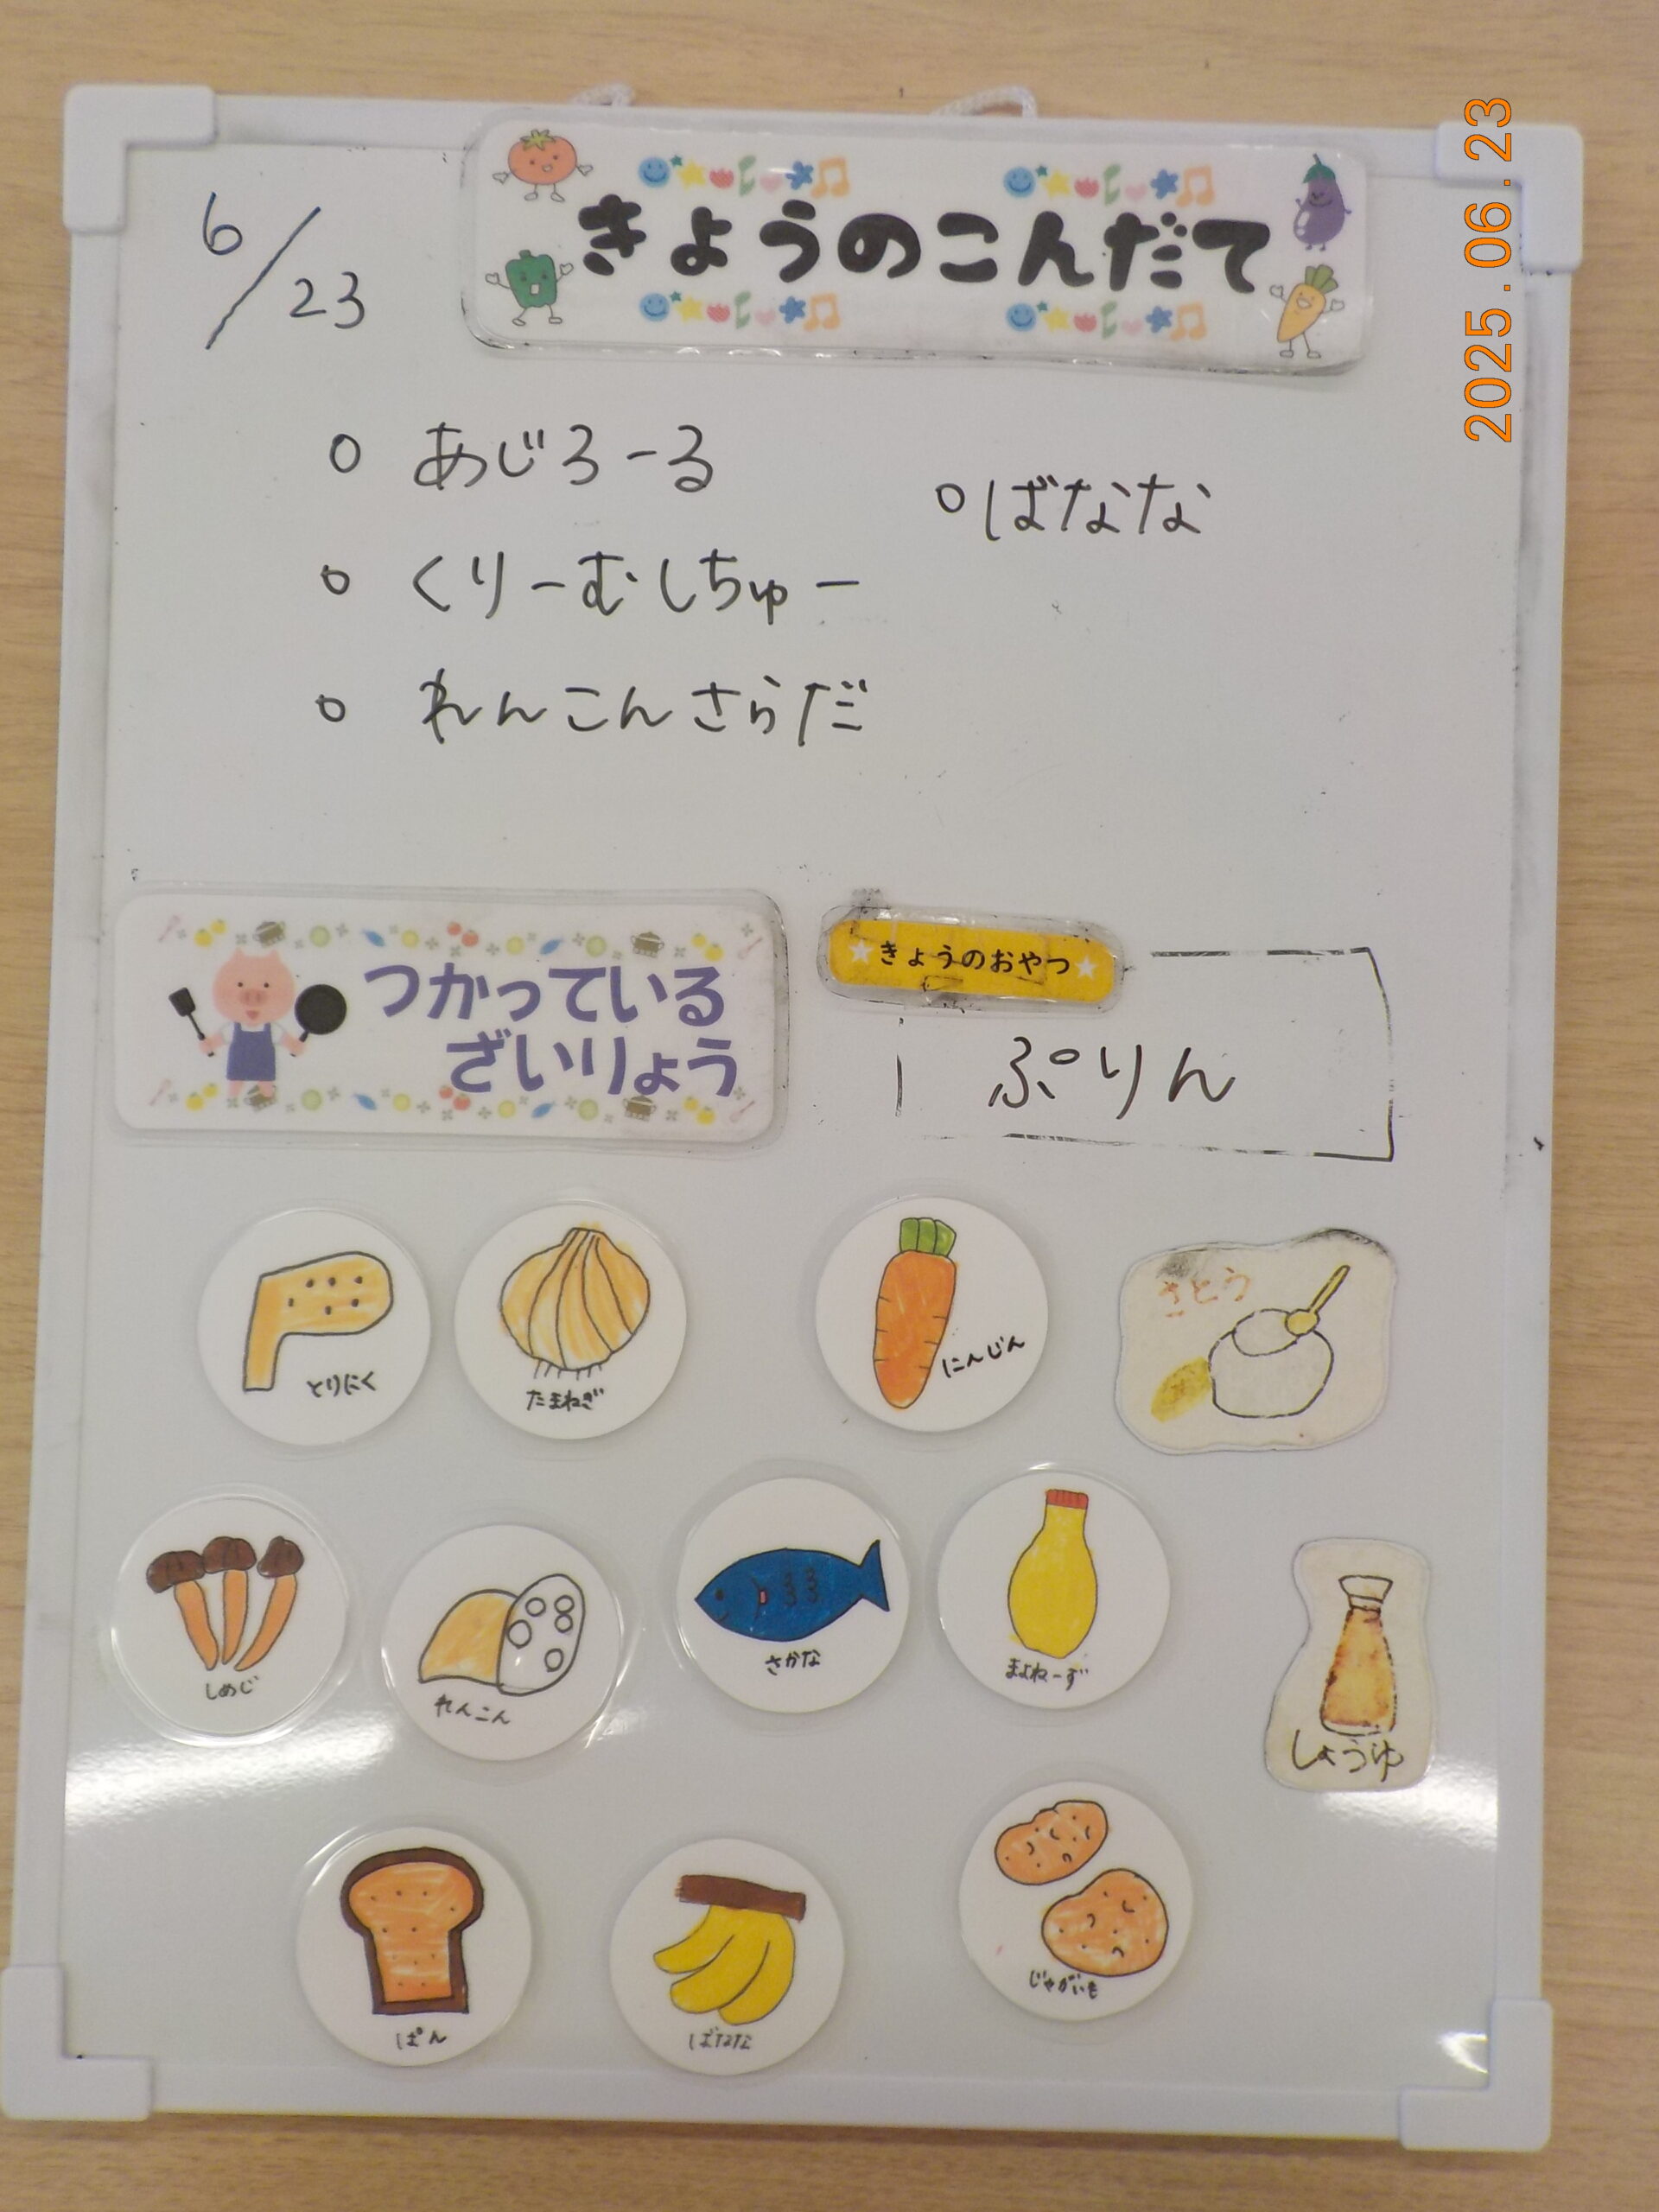 2025.06.23
きょうのこんだて
6/23
○ あじろーる
○ ばなな
○ くりーむしちゅー
○ れんこんさらだ
つかっている
ざいりょう
きょうのおやつ
ぷりん
とりにく
たまねぎ
にんじん
さとう
しめじ
れんこん
さかな
まよねーず
しょうゆ
ぱん
ばなな
じゃがいも